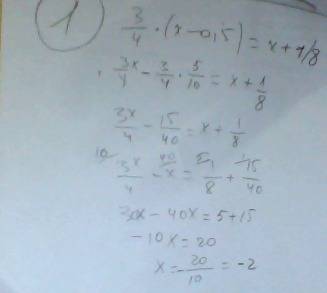 1
3/4 · (x-0,5) = x + 1/8
3x/4 - 3/4 · 5/10 = x + 1/8
3x/4 - 15/40 = x + 1/8
10/ 3x/4 - 40/ x = 5/ 1/8 + 1/ 15/40
30x - 40x = 5 + 15
-10x = 20
x = - 20/10 = -2